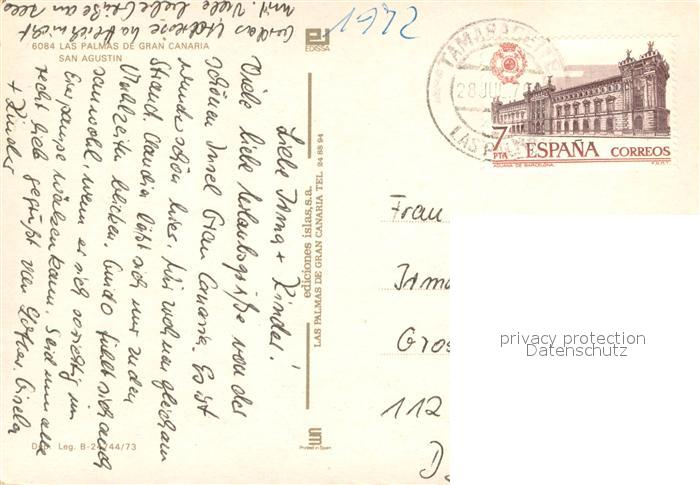 2461
und das Gedrose
mit. Viele liebe Grüße an
6084 LAS PALMAS DE GRAN CANARIA
SAN AGUSTIN
EDISSA
Liebe Irma + Kinder!
Viele liebe Urlaubsgrüße von der
schönen Insel Gran Canaria. Es ist
wunderschön hier. Wir wohnen gleich am
Strand. Claudia läßt sich nur zu den
Mahlzeiten blicken. Guido fühlt sich auch
sauwohl, wenn er sich vorsichtig im
wälzen kann. Seid nun alle
recht lieb gegrüßt von Lothar, Gisela
+ Kinder
Leg. B-2 744/73
ediciones islas, s.a.
LAS PALMAS DE GRAN CANARIA TEL. 24 88 94
Printed in Spain
TAMARACEITE
28 JUL 7
LAS PALMAS
7
PTA
ESPAÑA CORREOS
ADUANA DE BARCELONA
F.N.M.T.
Frau
Irma
Gros
112
D
privacy protection
Datenschutz